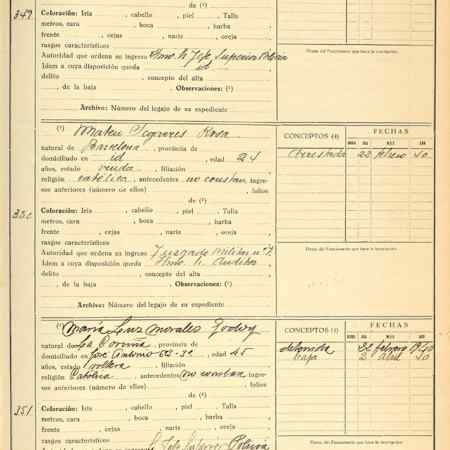 de (²)
349
Coloración: Iris , cabello , piel , Talla
metros, cara , boca , barba ,
frente , cejas , nariz , oreja
rasgos característicos
Autoridad que ordena su ingreso Ilmo Sr Jefe Superior Policía
Idem a cuya disposición queda id
delito , concepto del alta
, de la baja , Observaciones: (³)
Archivo: Número del legajo de su expediente
Firma del Funcionario que hace la inscripción.
(¹) Mateu Segarres Rosa
natural de Barcelona, provincia de
domiciliado en id , edad 24
años, estado viuda , filiación
religión católica , antecedentes no constan, ingre-
sos anteriores (número de ellos) , folios
de (²)
CONCEPTOS (4) FECHAS
DIA MES AÑO
22 febrero 40
350
Coloración: Iris , cabello , piel , Talla
metros, cara , boca , barba ,
frente , cejas , nariz , oreja
rasgos característicos
Autoridad que ordena su ingreso Juzgado Militar nº
Idem a cuya disposición queda Ilmo Sr Auditor
delito , concepto del alta
, de la baja , Observaciones: (³)
Archivo: Número del legajo de su expediente
Firma del Funcionario que hace la inscripción.
(¹) María Luz Morales Godoy
natural de La Coruña, provincia de
domiciliado en José Antonio 62-3º, edad 45
años, estado soltera , filiación
religión católica , antecedentes no constan, ingre-
sos anteriores (número de ellos) , folios
de (²)
CONCEPTOS (4) FECHAS
DIA MES AÑO
detenida 22 febrero 1940
baja 2 abril 40
351
Coloración: Iris , cabello , piel , Talla
metros, cara , boca , barba ,
frente , cejas , nariz , oreja
rasgos característicos
Firma del Funcionario que hace la inscripción.
Jefe Superior Policía